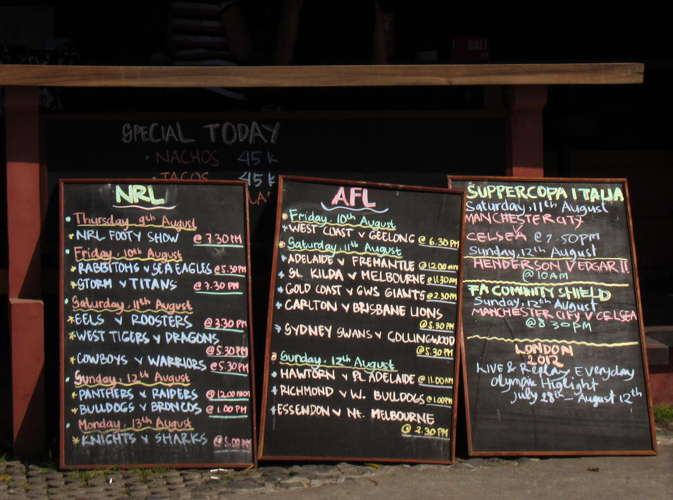 BALI
SPECIAL TODAY
• NACHOS 45 K
• TACOS 45 K
NRL
Thursday, 9th August
NRL FOOTY SHOW @ 7.30 PM
Friday, 10th August
RABBITOHS V SEA EAGLES @ 5.30 PM
STORM V TITANS @ 7.30 PM
Saturday, 11th August
EELS V ROOSTERS @ 3.30 PM
WEST TIGERS V DRAGONS
@ 5.30 PM
COWBOYS V WARRIORS @ 5.30 PM
Sunday, 12th August
PANTHERS V RAIDERS @ 12.00 noon
BULLDOGS V BRONCOS @ 1.00 PM
Monday, 13th August
KNIGHTS V SHARKS @ 5.00 PM
AFL
Friday, 10th August
WEST COAST V GEELONG @ 6.30 PM
Saturday, 11th August
ADELAIDE V FREMANTLE @ 12.00 am
ST. KILDA V MELBOURNE @ 11.30 AM
GOLD COAST V GWS GIANTS @ 2.30 PM
CARLTON V BRISBANE LIONS
@ 5.30 PM
SYDNEY SWANS V COLLINGWOOD
@ 5.30 PM
Sunday, 12th August
HAWTORN V PT. ADELAIDE @ 11.00 AM
RICHMOND V W. BULLDOGS @ 1.00 PM
ESSENDON V Nt. MELBOURNE
@ 2.30 PM
SUPPERCOPA ITALIA
Saturday, 11th August
MANCHESTER CITY
V
CELSEA @ 7.50 PM
Sunday, 12th August
HENDERSON V EDGAR II
@ 10 AM
FA COMUNITY SHIELD
Sunday, 12th August
MANCHESTER CITY V CELSEA
@ 8.30 PM
LONDON
2012
LIVE & Replay Everyday
Olympic Higlight
July 28th - August 12th